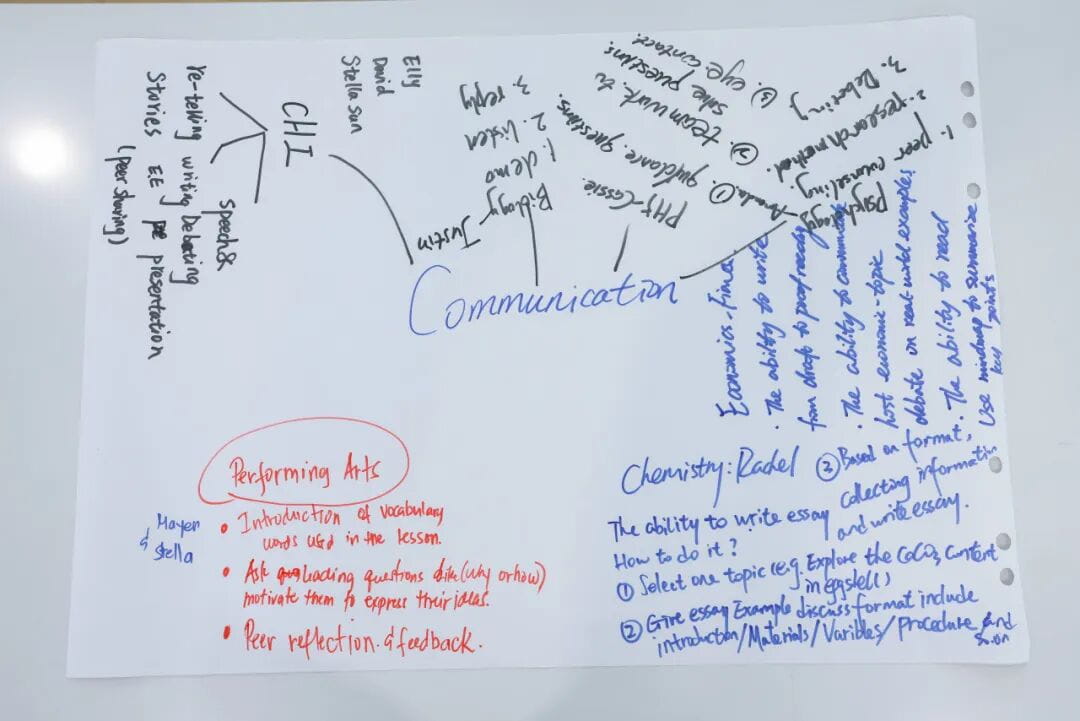 Communication
CHI
Elly
David
Stella Sun
Re-telling writing Debating
Stories EE presentation
(peer sharing)
speech&
Justin
Biology
1. demo
2. listen
3. reply
PHY-Cassie.
① guidance. questions.
② teamwork to
solve questions.
③. eye contact.
psychology-
1. peer counseling.
2. research method.
3. Debating
Economics-Fina.
· The ability to write
from draft to proof ready
· The ability to
host economic-topic
debate on real-world examples
· The ability to read
Use mindmap to summarize
key points
Performing Arts
Mayer
& Stella
• Introduction of vocabulary
words used in the lesson.
• Ask leading questions like (why or how)
motivate them to express their ideas.
• Peer reflection & feedback.
Chemistry: Rachel
The ability to write essay
How to do it?
① Select one topic (e.g. Explore the CaCO3 content
in eggshell)
② Give essay Example discuss format include
introduction/Materials/Varibles/Procedure and
so on
③ Based on format,
collecting information
and write essay.